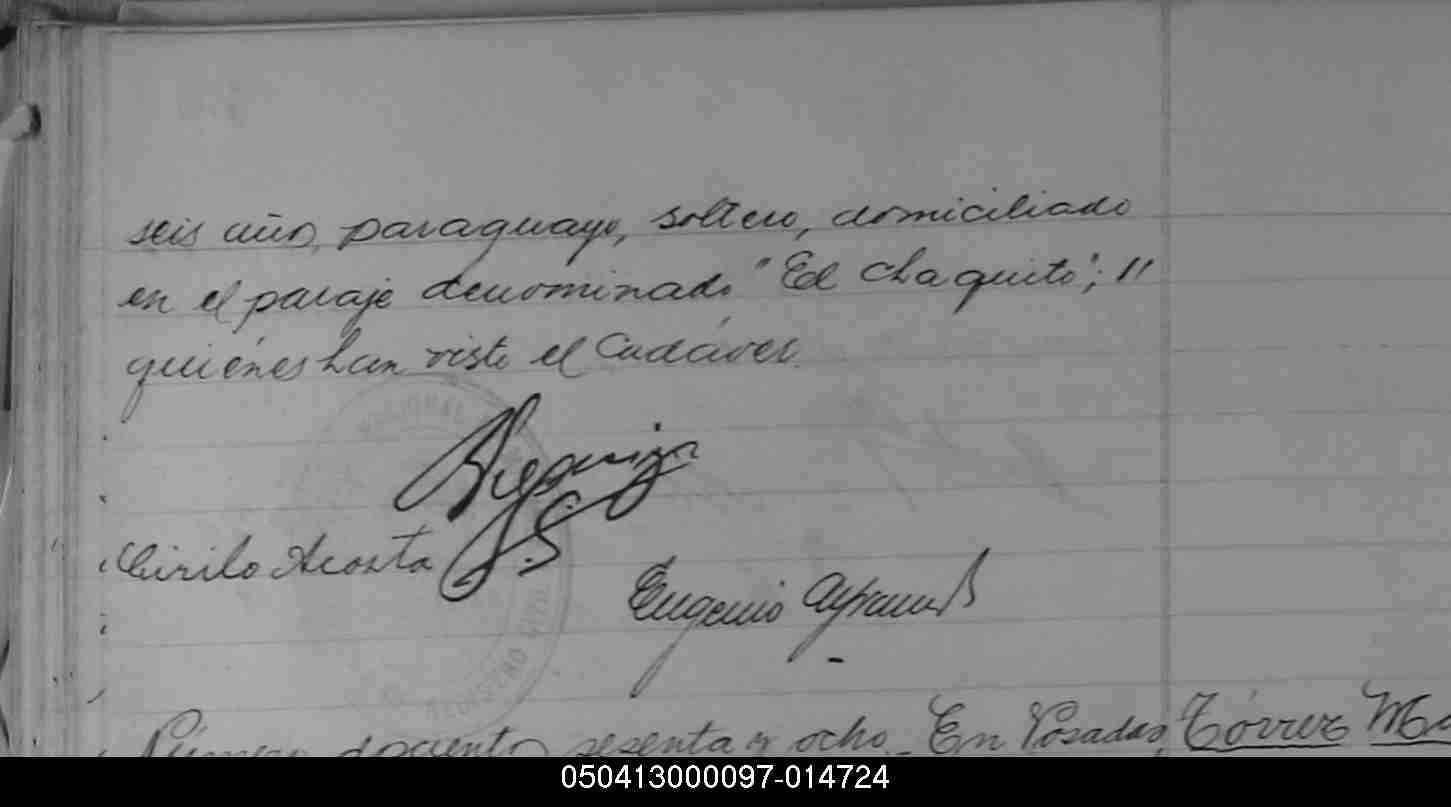 seis año, paraguayo, soltero, domiciliado
en el paraje denominado "El Chaquito"; //
quiénes han visto el Cadáver.
NACIONAL
Cirilo Acosta
Eugenio
REGISTRO CIVIL
Número dociento sesenta y ocho. En Posadas, Tórrez
050413000097-014724